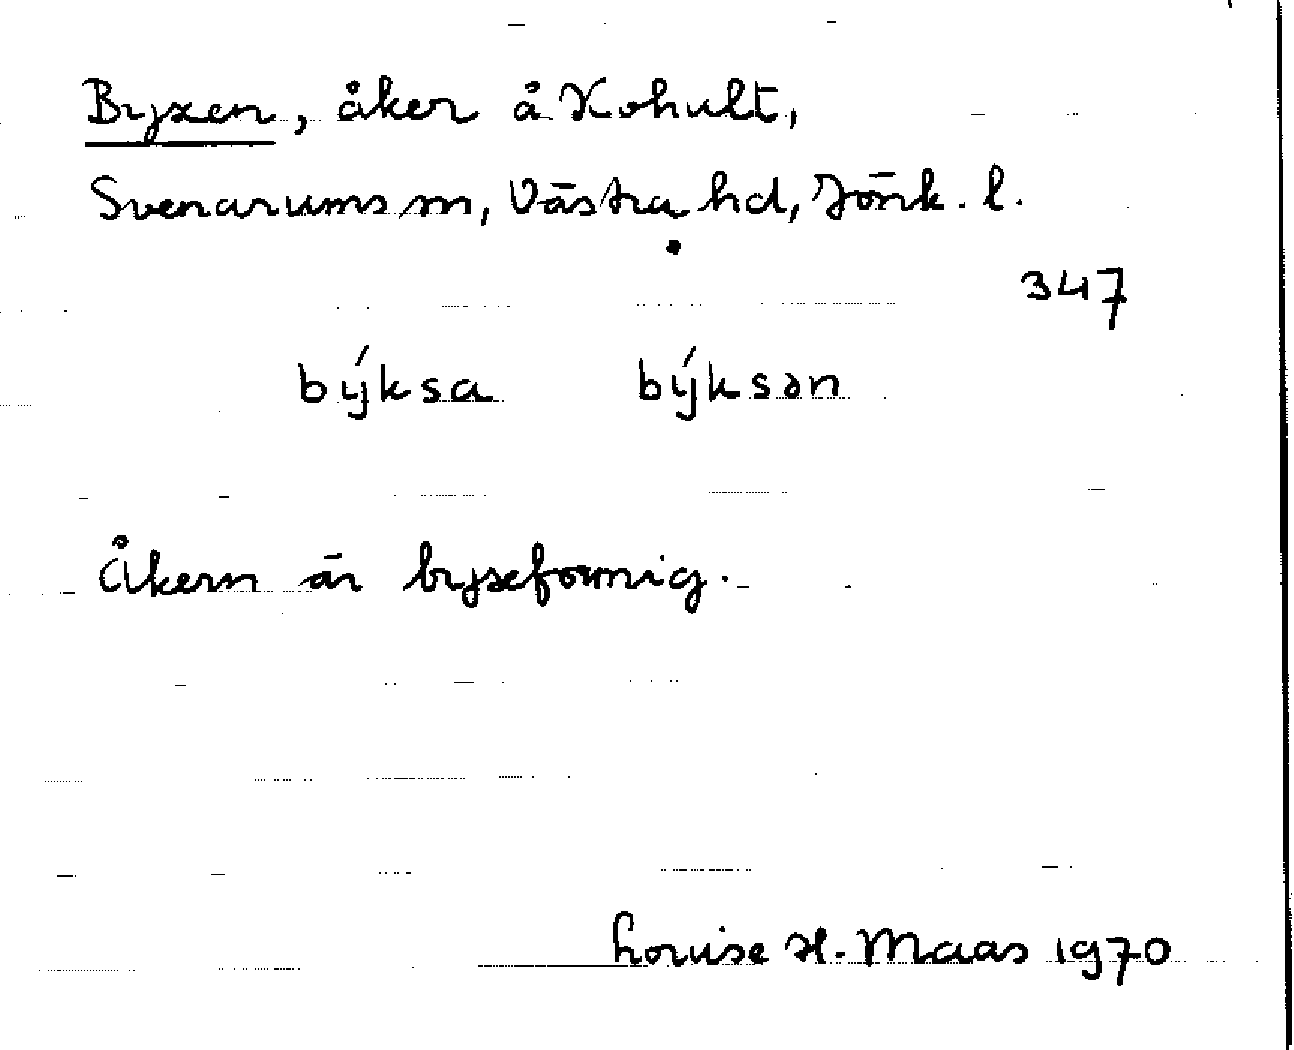 Byxen, åker å Kohult,
Svenarums sn, Västra hd, Jönk. l.
347
býksa býksən
Åkern är byxformig.
Louise H. Maas 1970